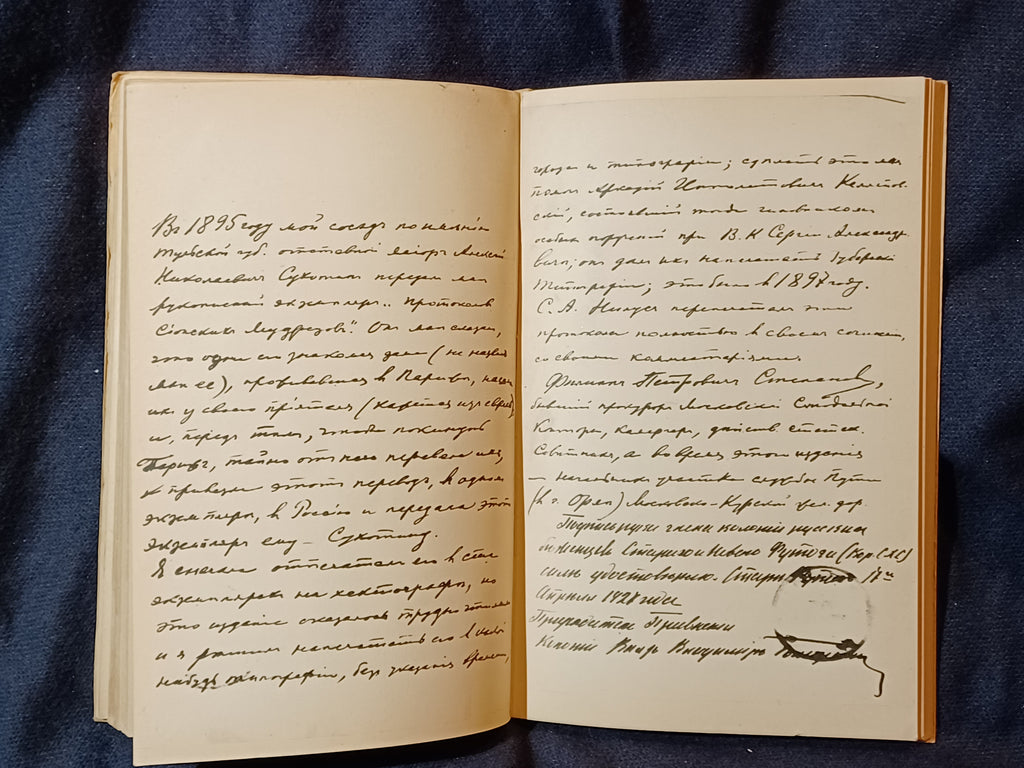 Въ 1895 году мой соседъ по имѣнію
Тульской губ. отставной маіоръ Алексѣй
Николаевичъ Сухотинъ передалъ мнѣ
рукописный экземпляръ „Протоколовъ
Сіонскихъ Мудрецовъ". Онъ мнѣ сказалъ,
что одна его знакомая дама (не назвалъ
мнѣ ее), проживавшая въ Парижѣ, нашла
ихъ у своего пріятеля (кажется изъ евреевъ)
и, передъ тѣмъ, чтобы покинуть
Парижъ, тайно отъ него перевела ихъ,
и привезла этотъ переводъ, въ одномъ
экземплярѣ, въ Россію и передала этотъ
экземпляръ ему – Сухотину.
Я сначала отпечаталъ его въ сто
экземплярахъ на хектографѣ, но
это изданіе оказалось трудно читаемымъ
и я рѣшилъ напечатать его въ какой
нибудь типографіи, безъ указанія времени,
города и типографіи; сдѣлать это мнѣ
помогъ Аркадій Ипполитовичъ Келеповскій,
скій, состоявшій тогда чиновникомъ
особыхъ порученій при В. К Сергіи Александро-
вичѣ; онъ далъ ихъ напечатать Губернской
Типографіи; это было въ 1897 году.
С. А. Нилусъ перепечаталъ эти
протоколы полностью въ своемъ сочиненіи,
со своими комментаріями.
Филиппъ Петровичъ Степановъ,
бывшій прокуроръ Московской Синодальной
Конторы, камергеръ, дѣйств. статск.
Совѣтникъ, а во время этого изданія
– начальникъ участка службы Пути
(въ г. Орлѣ) Московско-Курской жел. дор.
Подпись руки члена колоніи русскихъ
бѣженцевъ Стараго и Новаго Футога (Кор. СХС)
симъ удостовѣряю. Старый Футогъ 17го
Апрѣля 1927 года
Предсѣдатель Правленія
Колоніи Князь Владиміръ